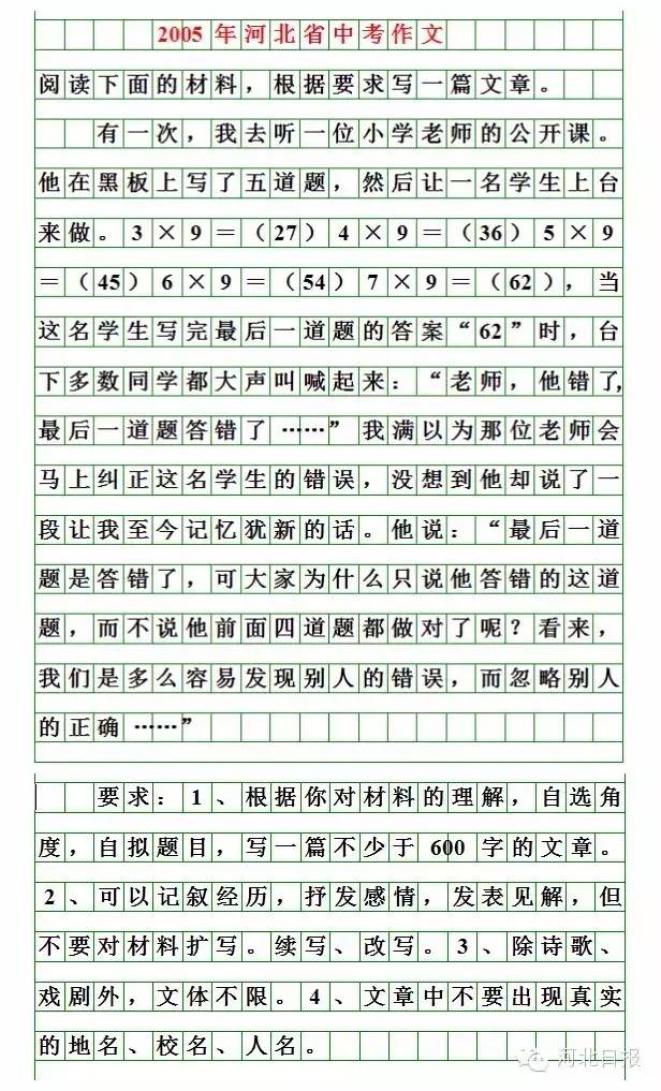 2005年河北省中考作文
阅读下面的材料，根据要求写一篇文章。
有一次，我去听一位小学老师的公开课。
他在黑板上写了五道题，然后让一名学生上台
来做。3×9＝（27）4×9＝（36）5×9
＝（45）6×9＝（54）7×9＝（62），当
这名学生写完最后一道题的答案“62”时，台
下多数同学都大声叫喊起来：“老师，他错了，
最后一道题答错了……”我满以为那位老师会
马上纠正这名学生的错误，没想到他却说了一
段让我至今记忆犹新的话。他说：“最后一道
题是答错了，可大家为什么只说他答错的这道
题，而不说他前面四道题都做对了呢？看来，
我们是多么容易发现别人的错误，而忽略别人
的正确……”
要求：1、根据你对材料的理解，自选角
度，自拟题目，写一篇不少于600字的文章。
2、可以记叙经历，抒发感情，发表见解，但
不要对材料扩写。续写、改写。3、除诗歌、
戏剧外，文体不限。4、文章中不要出现真实
的地名、校名、人名。
河北日报